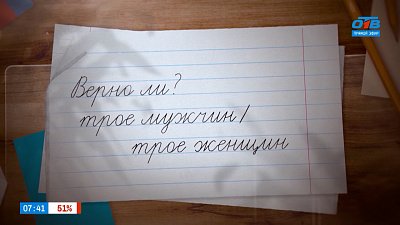 ОТВ
ПРЯМОЙ ЭФИР
Верно ли?
трое мужчин/
трое женщин
07:41 51%